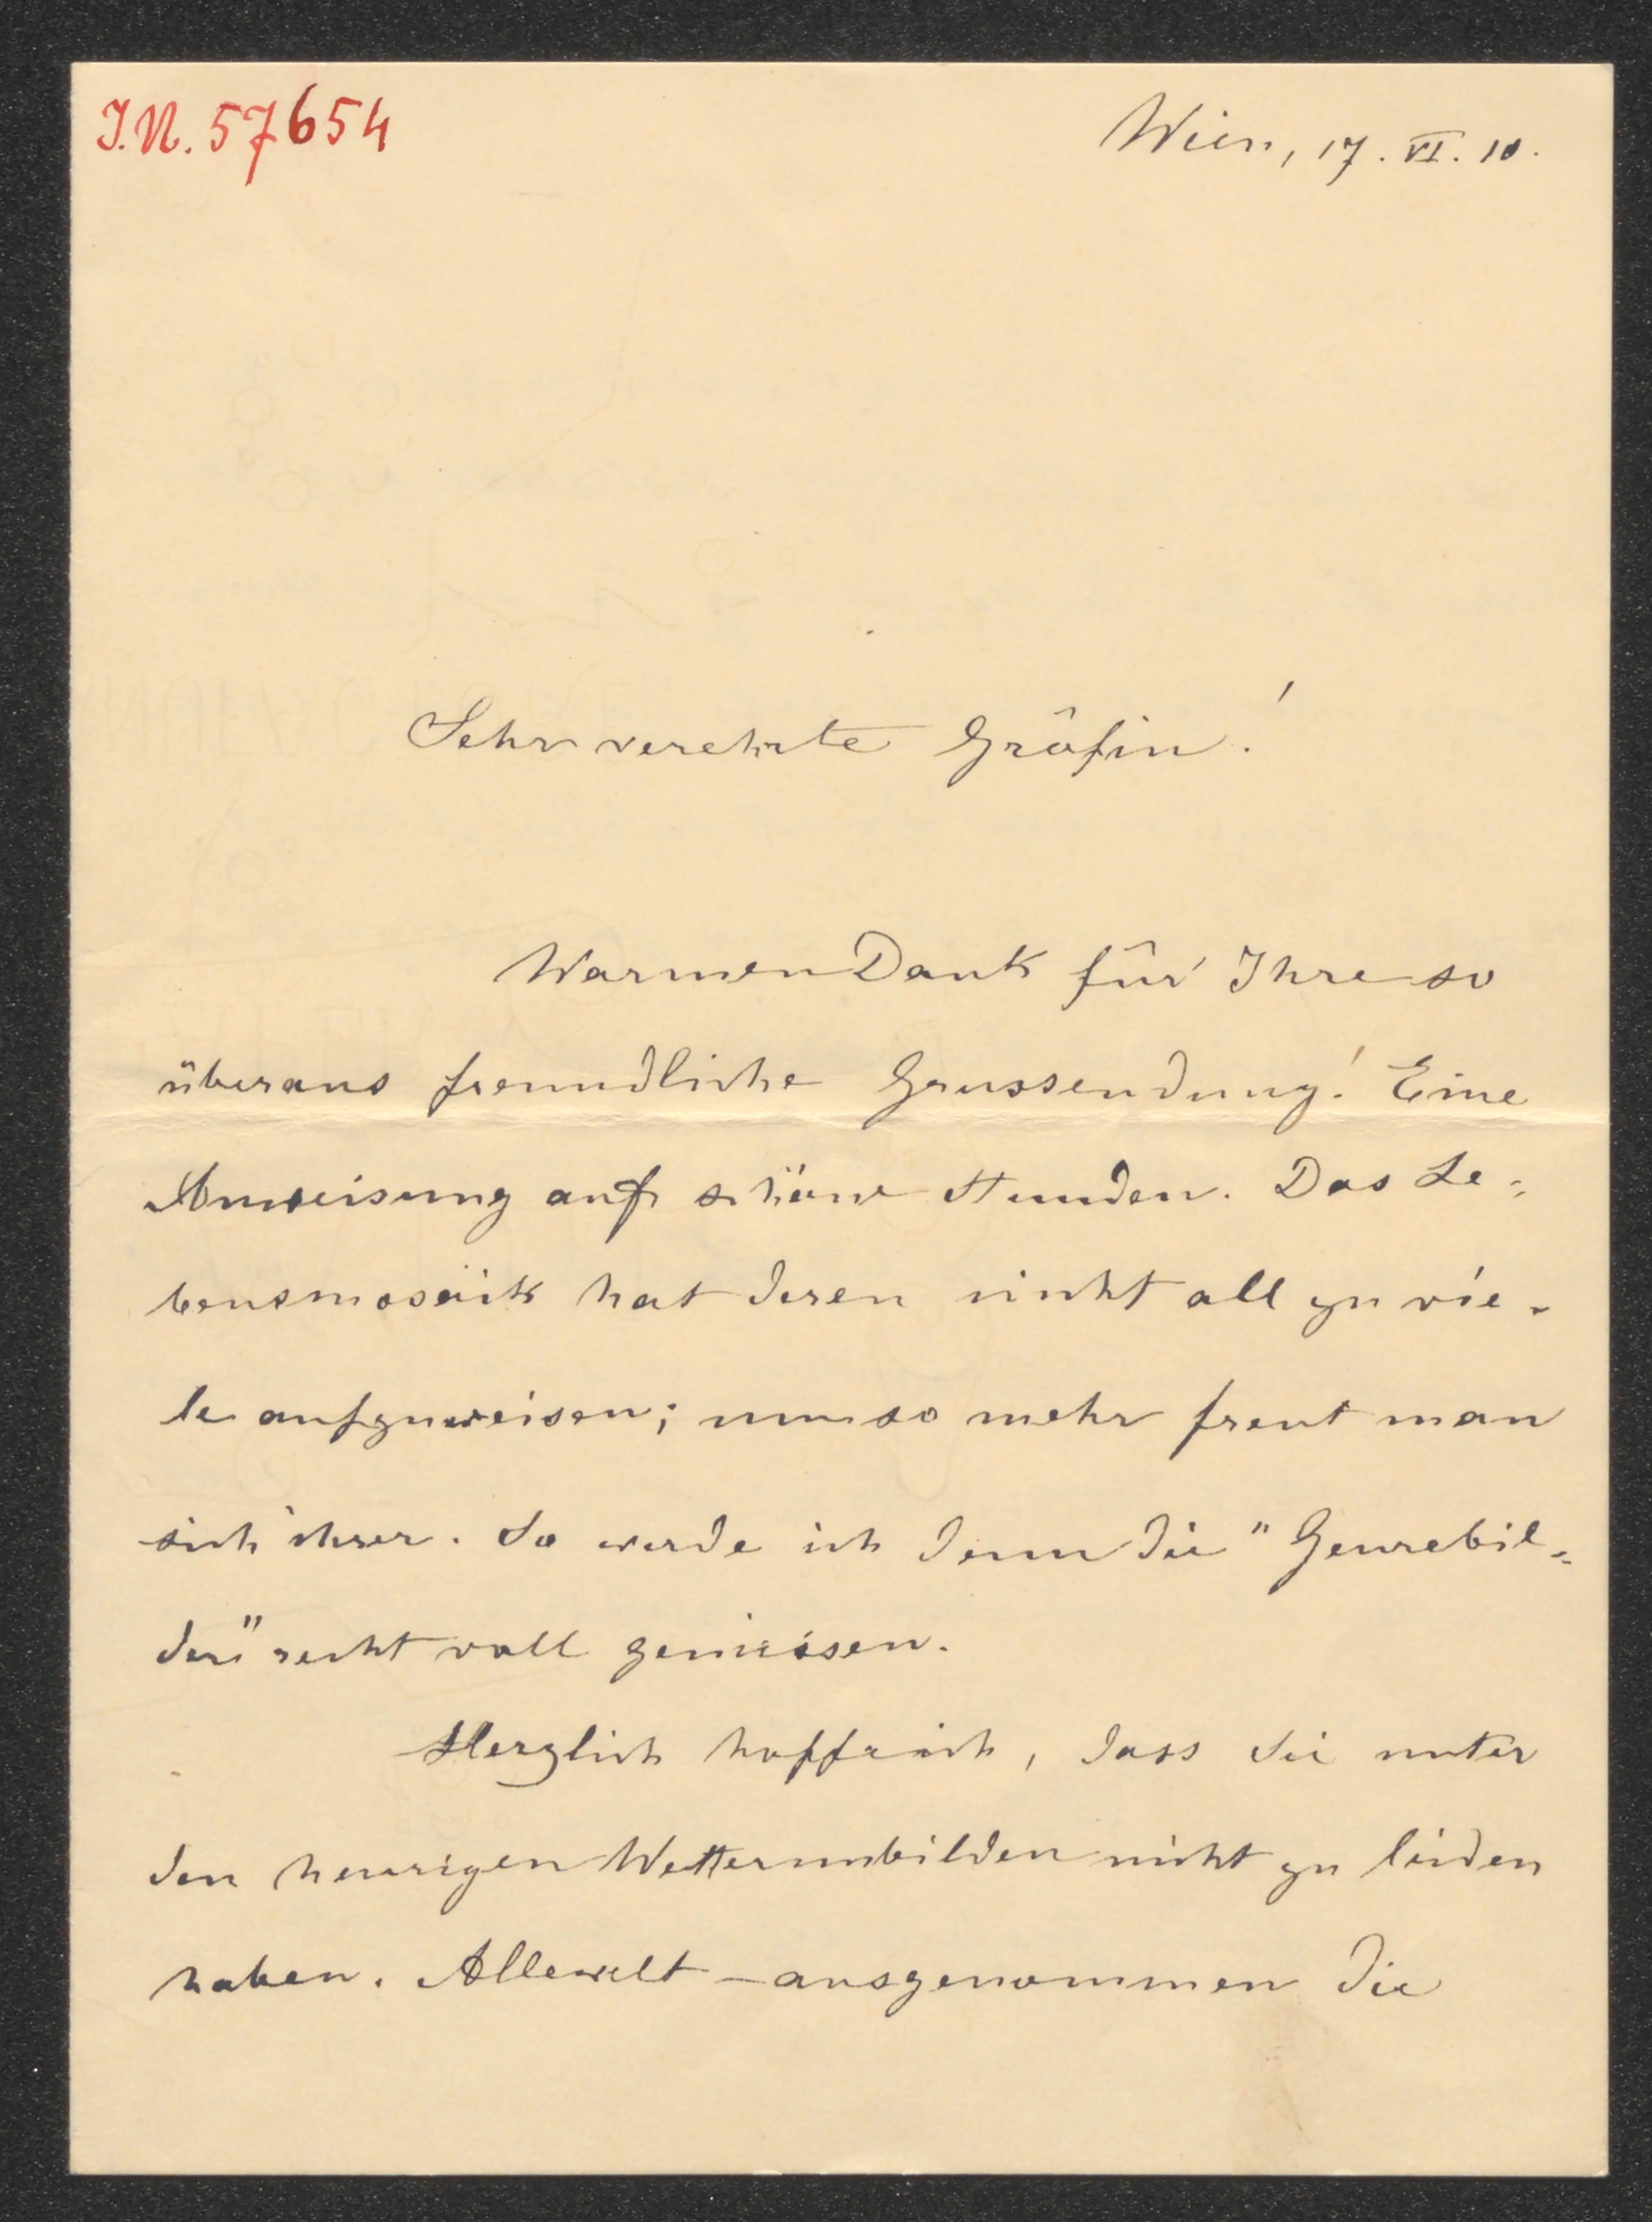 I.N. 57654
Wien, 17. VI. 10.
Sehr verehrte Gräfin!
Warmen Dank für Ihre so
überaus freundliche Grussendung! Eine
Anweisung auf schöne Stunden. Das Le-
bensmosaik hat deren nicht all zu vie-
le aufzuweisen; umso mehr freut man
sich ihrer. So werde ich denn die "Genrebil-
der" recht voll geniessen.
Herzlich hoffe ich, dass Sie unter
den heurigen Wetterunbilden nicht zu leiden
haben. Allewelt – ausgenommen die